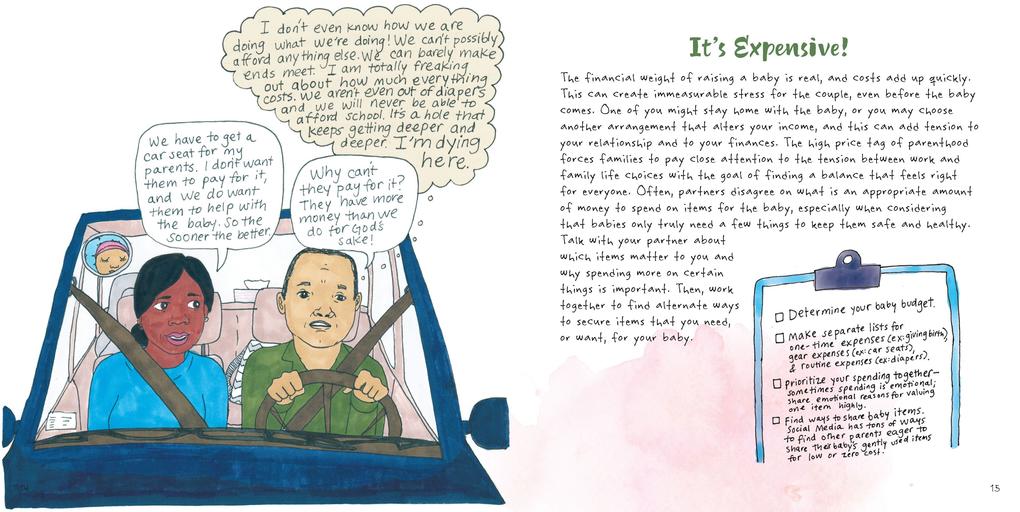 I don't even know how we are
doing what we're doing! We can't possibly
afford anything else. We can barely make
ends meet. I am totally freaking
out about how much everything
costs. We aren't even out of diapers
and we will never be able to
afford school. It's a hole that
keeps getting deeper and
deeper. I'm dying
here.
We have to get a
car seat for my
parents. I don't want
them to pay for it,
and we do want
them to help with
the baby. So the
sooner the better.
Why can't
they pay for it?
They have more
money than we
do for God's
sake!
14
It's Expensive!
The financial weight of raising a baby is real, and costs add up quickly.
This can create immeasurable stress for the couple, even before the baby
comes. One of you might stay home with the baby, or you may choose
another arrangement that alters your income, and this can add tension to
your relationship and to your finances. The high price tag of parenthood
forces families to pay close attention to the tension between work and
family life choices with the goal of finding a balance that feels right
for everyone. Often, partners disagree on what is an appropriate amount
of money to spend on items for the baby, especially when considering
that babies only truly need a few things to keep them safe and healthy.
Talk with your partner about
which items matter to you and
why spending more on certain
things is important. Then, work
together to find alternate ways
to secure items that you need,
or want, for your baby.
Determine your baby budget.
Make separate lists for
one-time expenses (ex: giving birth),
gear expenses (ex: car seats),
& routine expenses (ex: diapers).
Prioritize your spending together—
sometimes spending is emotional;
share emotional reasons for valuing
one item highly.
Find ways to share baby items.
Social Media has tons of ways
to find other parents eager to
share their baby's gently used items
for low or zero cost.
15